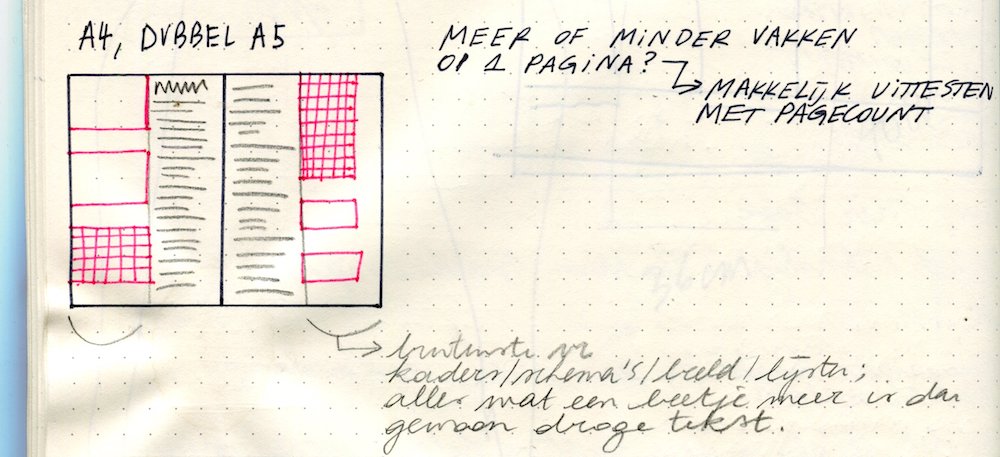 A4, DUBBEL A5
MEER OF MINDER VAKKEN
OP 1 PAGINA?
MAKKELIJK UITTESTEN
MET PAGECOUNT
buitenste
kaders/schema's/beeld/lijsten;
alles wat een beetje meer is dan
gewoon droge tekst.